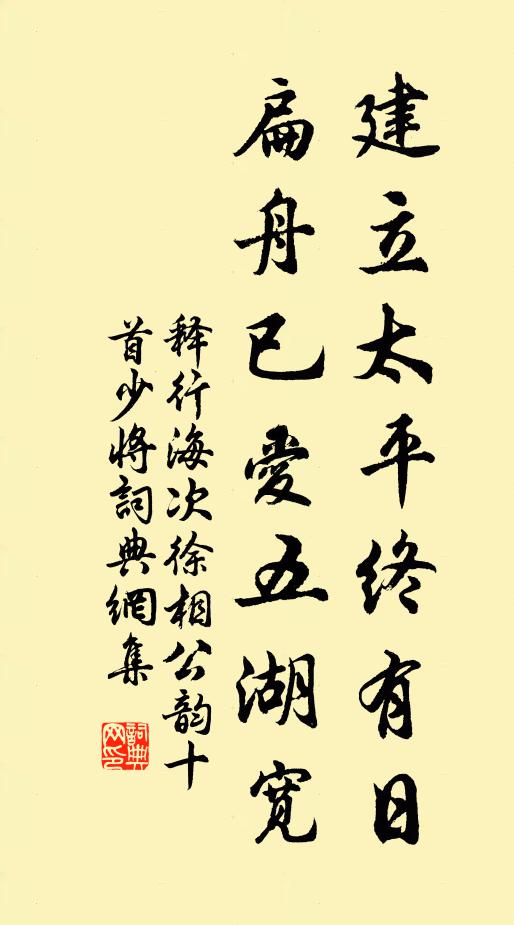 建立太平终有日
扁舟已愛五湖寬
释行海次徐相公韵十
首少將詞典網集
詞典
网印